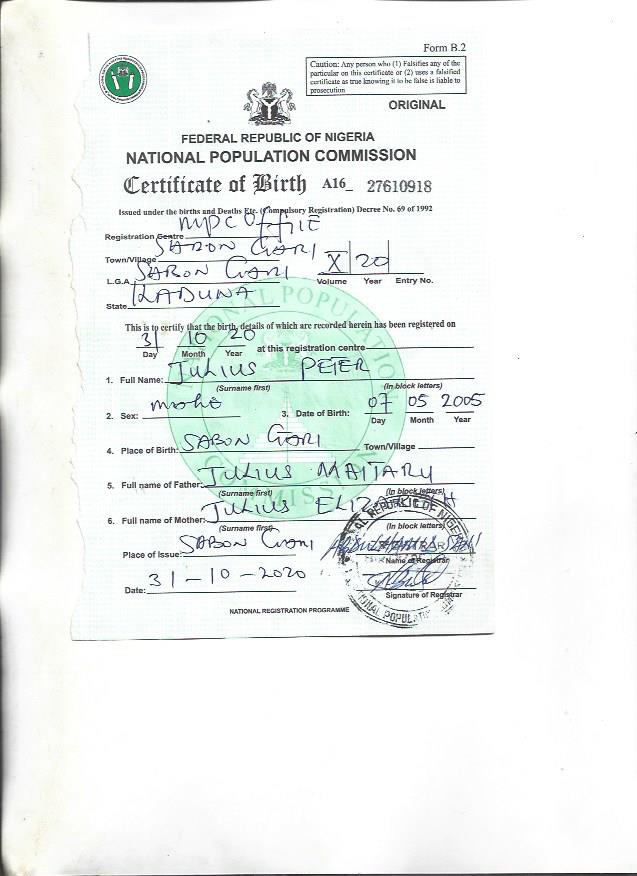 Form B.2
Caution: Any person who (1) Falsifies any of the
particular on this certificate or (2) uses a falsified
certificate as true knowing it to be false is liable to
prosecution
ORIGINAL
FEDERAL REPUBLIC OF NIGERIA
NATIONAL POPULATION COMMISSION
Certificate of Birth A16_ 27610918
Issued under the births and Deaths Etc. (Compulsory Registration) Decree No. 69 of 1992
Registration Centre
Town/Village SABON GARI
L.G.A. SABON GARI X 20
Volume Year Entry No.
State KADUNA
This is to certify that the birth, details of which are recorded herein has been registered on
31 10 20
Day Month Year at this registration centre
1. Full Name: JULIUS PETER
(Surname first) (In block letters)
2. Sex: 3. Date of Birth: 07 05 2005
Day Month Year
4. Place of Birth: SABON GARI Town/Village
5. Full name of Father: JULIUS MAITARY
(Surname first) (In block letters)
6. Full name of Mother: JULIUS
(Surname first) (In block letters)
Place of Issue: SABON GARI
Name of Registrar
Date: 31-10-2020
Signature of Registrar
NATIONAL REGISTRATION PROGRAMME